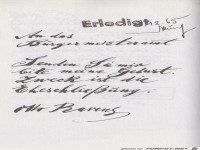 Erledigt
An das
Bürgermeisteramt
Senden Sie mir
bitte meine Geburt.
Zweck ist die
Eheschließung.
Otto